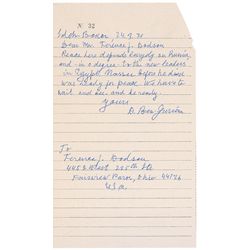 Nº 32
Sdeh Boker 24.9.70
Dear Mr. Terence J. Dodson
Peace here depends largely on Russia
and - in a degree - to the new leaders
in Egypt. Nasser before he died
was ready for peace. We have to
wait and see, and be ready.
Yours
D. Ben Gurion
To
Terence J. Dodson
445 West 225th St.
Fairview Park, Ohio 44126
U.S.A